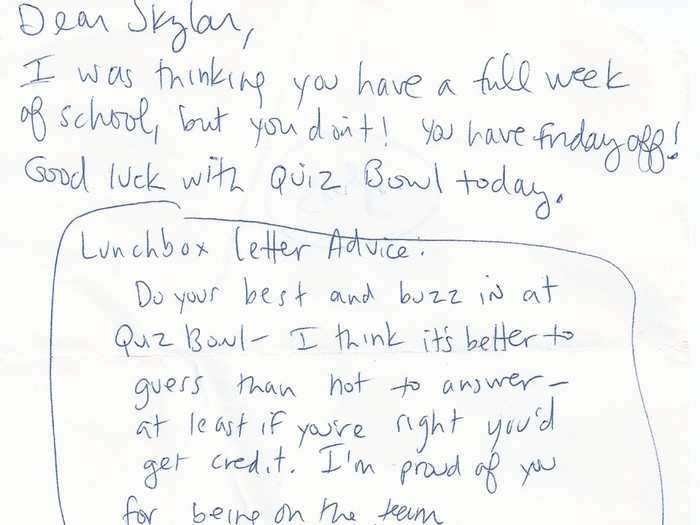 Dear Skylar,
I was thinking you have a full week
of school, but you don't! You have friday off!
Good luck with Quiz Bowl today.
Lunchbox Letter Advice:
Do your best and buzz in at
Quiz Bowl - I think it's better to
guess than not to answer -
at least if you're right you'd
get credit. I'm proud of you
for being on the team